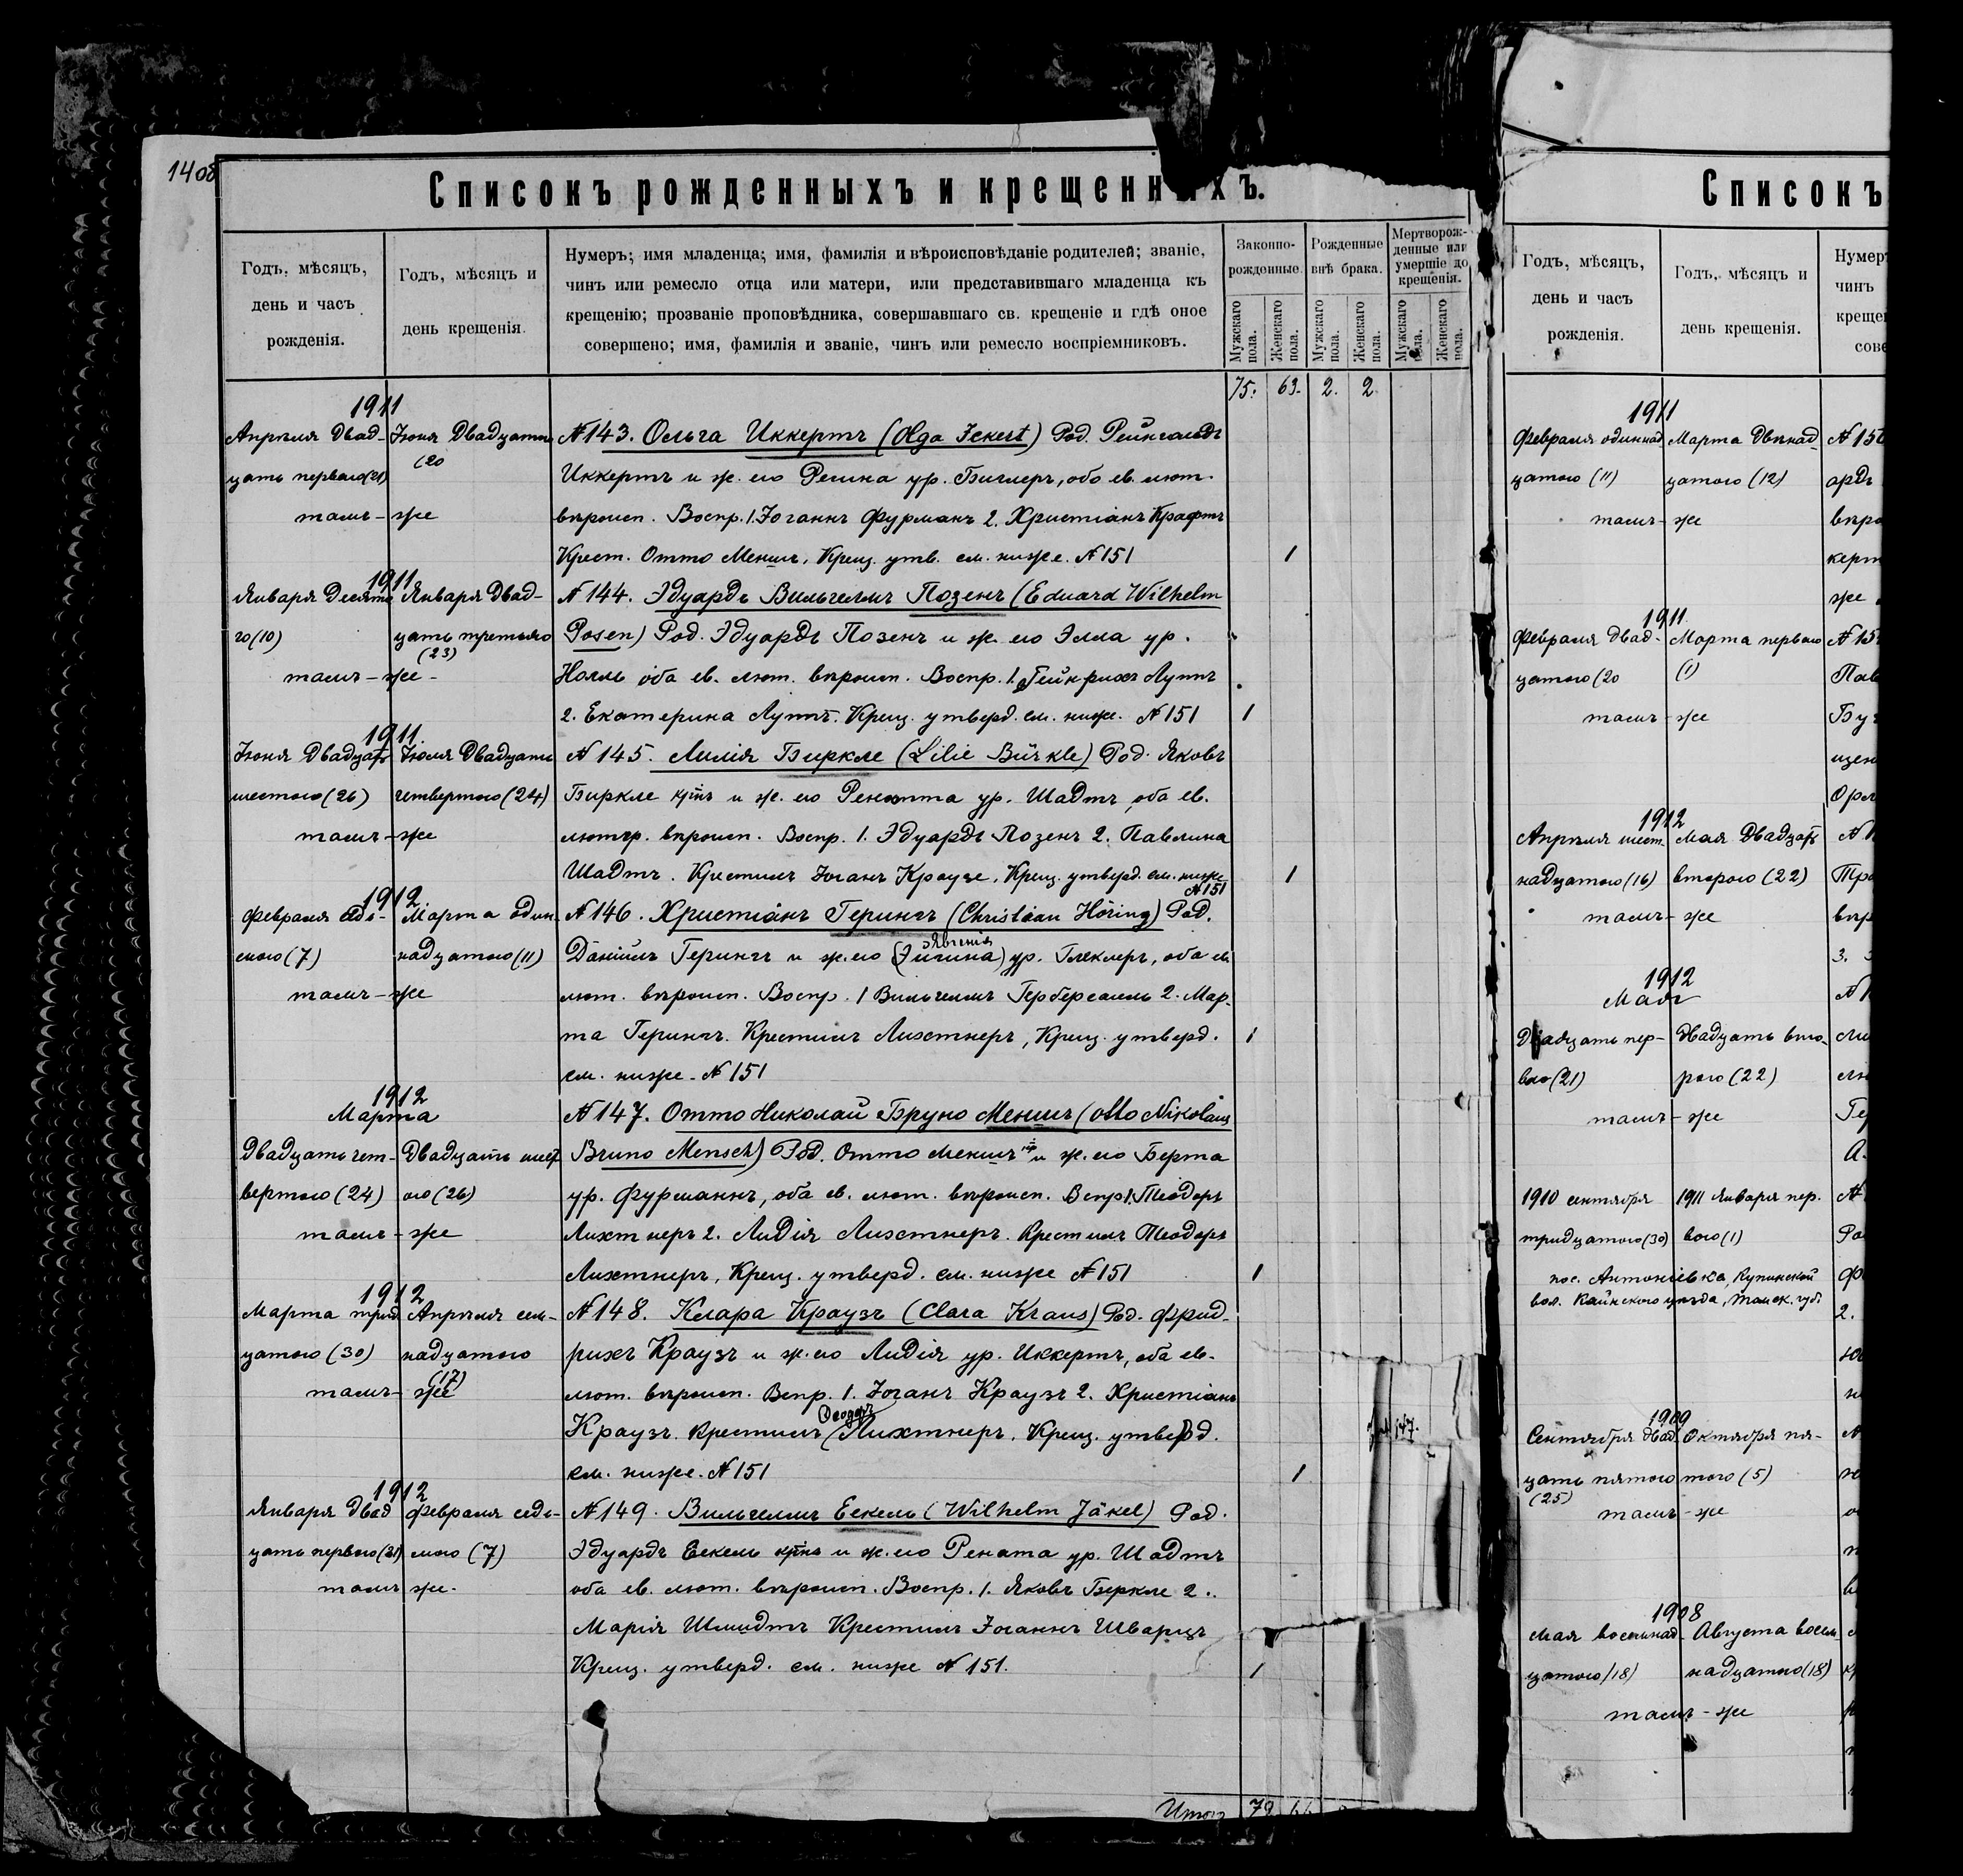 14 об
Списокъ рожденныхъ и крещенныхъ.
Годъ, мѣсяцъ,
день и часъ
рожденія.
Годъ, мѣсяцъ и
день крещенія.
Нумеръ; имя младенца; имя, фамилія и вѣроисповѣданіе родителей; званіе,
чинъ или ремесло отца или матери, или представившаго младенца къ
крещенію; прозваніе проповѣдника, совершавшаго св. крещеніе и гдѣ оное
совершено; имя, фамилія и званіе, чинъ или ремесло воспріемниковъ.
Законно-
рожденные.
Рожденные
внѣ брака.
Мертворож-
денные или
умершіе до
крещенія.
Мужскаго пола.
Женскаго пола.
Мужскаго пола.
Женскаго пола.
Мужскаго пола.
Женскаго пола.
75. 63. 2. 2
1911
Апрѣля двад-
цать перваго (21)
Іюня двадцать
(20
тамъ - же
№ 143. Ольга Иккертъ (Olga Ickert) Род. Рейнгольдъ
Иккертъ и ж. его Регина ур. Биглеръ, обо ев. лют.
вѣроисп. Воспр. 1. Іоганнъ Фурманъ 2. Христіанъ Крафтъ
Крест. Отто Меншъ, Крещ. утв. см. ниже. № 151
1
1911
Января десята
го (10)
Января двад-
цать третьяго
(23)
тамъ - же -
№ 144. Эдуардъ Вильгельмъ Позенъ (Eduard Wilhelm
Posen) Род. Эдуардъ Позенъ и ж. его Элла ур.
Нолль оба ев. лют. вѣроисп. Воспр. 1. Гейнрихъ Луттъ
2. Екатерина Луттъ. Крещ. утверд. см. ниже. № 151
1
1911.
Іюня двадцать
шестого (26)
Іюля двадцать
четвертого (24)
тамъ - же
№ 145. Лилія Биркле (Lilie Bürkle) Род. Яковъ
Биркле крн и ж. его Ренатта ур. Шадтъ, оба ев.
лютер. вѣроисп. Воспр. 1. Эдуардъ Позенъ 2. Павлина
Шадтъ. Крестилъ Іоганъ Краузе, Крещ. утверд. см. ниже
№ 151
1
1912
Февраля седь-
мого (7)
Марта один-
надцатого (11)
тамъ - же
№ 146. Христіанъ Герингъ (Christian Höring) Род.
Даніилъ Герингъ и ж. его (Эйгина) ур. Глеклеръ, оба ев.
Явгенія
лют. вѣроисп. Воспр. 1 Вильгельмъ Герберсгель 2. Мар-
та Герингъ. Крестилъ Лихтнеръ, Крещ. утверд.
см. ниже - № 151
1
1912
Марта
Двадцать чет-
вертого (24)
Двадцать шест
ого (26)
тамъ - же
№ 147. Отто Николай Бруно Меншъ (Otto Nikolaus
Bruno Mensch) Род. Отто Меншъ и ж. его Берта
ур. Фурманнъ, оба ев. лют. вѣроисп. Вспр. 1. Теодоръ
Лихтнеръ 2. Лидія Лихтнеръ. Крестилъ Теодоръ
Лихтнеръ, Крещ. утверд. см. ниже № 151
1
1912
Марта трид
цатого (30)
Апрѣля сем-
надцатого
(17)
тамъ - же
№ 148. Клара Краузъ (Clara Kraus) Род. Фрид-
рихъ Краузъ и ж. его Лидія ур. Иккертъ, оба ев.
лют. вѣроисп. Вспр. 1. Іоганъ Краузъ 2. Христіанъ
Краузъ. Крестилъ Лихтнеръ. Крещ. утверд.
Өеодоръ
см. ниже. № 151
1
147.
1912
Января двад
цать перваго (21)
Февраля седь-
мого (7)
тамъ же.
№ 149. Вильгельмъ Еккель (Wilhelm Jäkel) Род.
Эдуардъ Еккель крнъ и ж. его Рената ур. Шадтъ
оба ев. лют. вѣроисп. Воспр. 1. Яковъ Беркле 2.
Марія Шмидтъ Крестилъ Іоганнъ Шварцъ
Крещ. утверд. см. ниже № 151.
1
Итого
Списокъ
Годъ, мѣсяцъ,
день и часъ
рожденія.
Годъ, мѣсяцъ и
день крещенія.
Нумер
чинъ
креще
сове
1911
Февраля одиннад
цатого (11)
Марта двѣнад
цатого (12)
тамъ - же
№ 150
ардъ
вѣро
керт
же
1911
Февраля двад-
цатого (20
Марта перваго
(1)
тамъ - же
№ 15
Пав
Буч
щен
Орл
1912
Апрѣля шест-
надцатого (16)
Мая двадцать
второго (22)
тамъ - же
Тра
вѣр
3.
1912
Мая
Двадцать пер-
ваго (21)
Двадцать вто-
рого (22)
тамъ - же
Гер
А.
1910 сентября
тридцатого (30)
1911 января пер.
вого (1)
пос. Антоніевка, Купинской
вол. Каинского уѣзда, Томск. губ.
2.
1909
Сентября двад
цать пятого
(25)
Октября пя-
того (5)
тамъ - же
1908
Мая восемнад
цатого (18)
Августа восем
надцатого (18)
тамъ - же